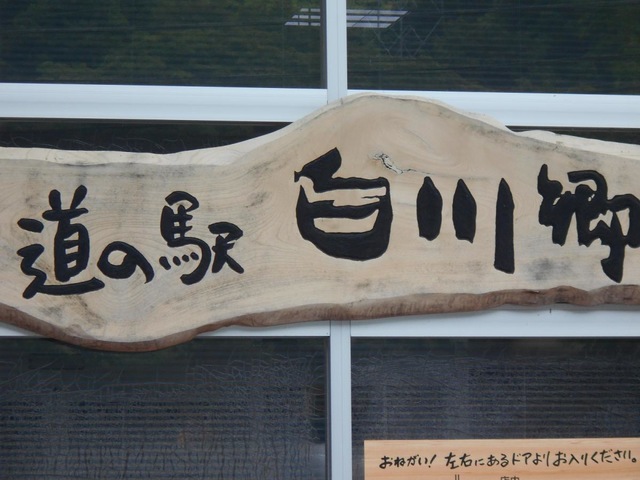 道の駅 白川郷
おねがい！左右にあるドアよりお入りください。
店内